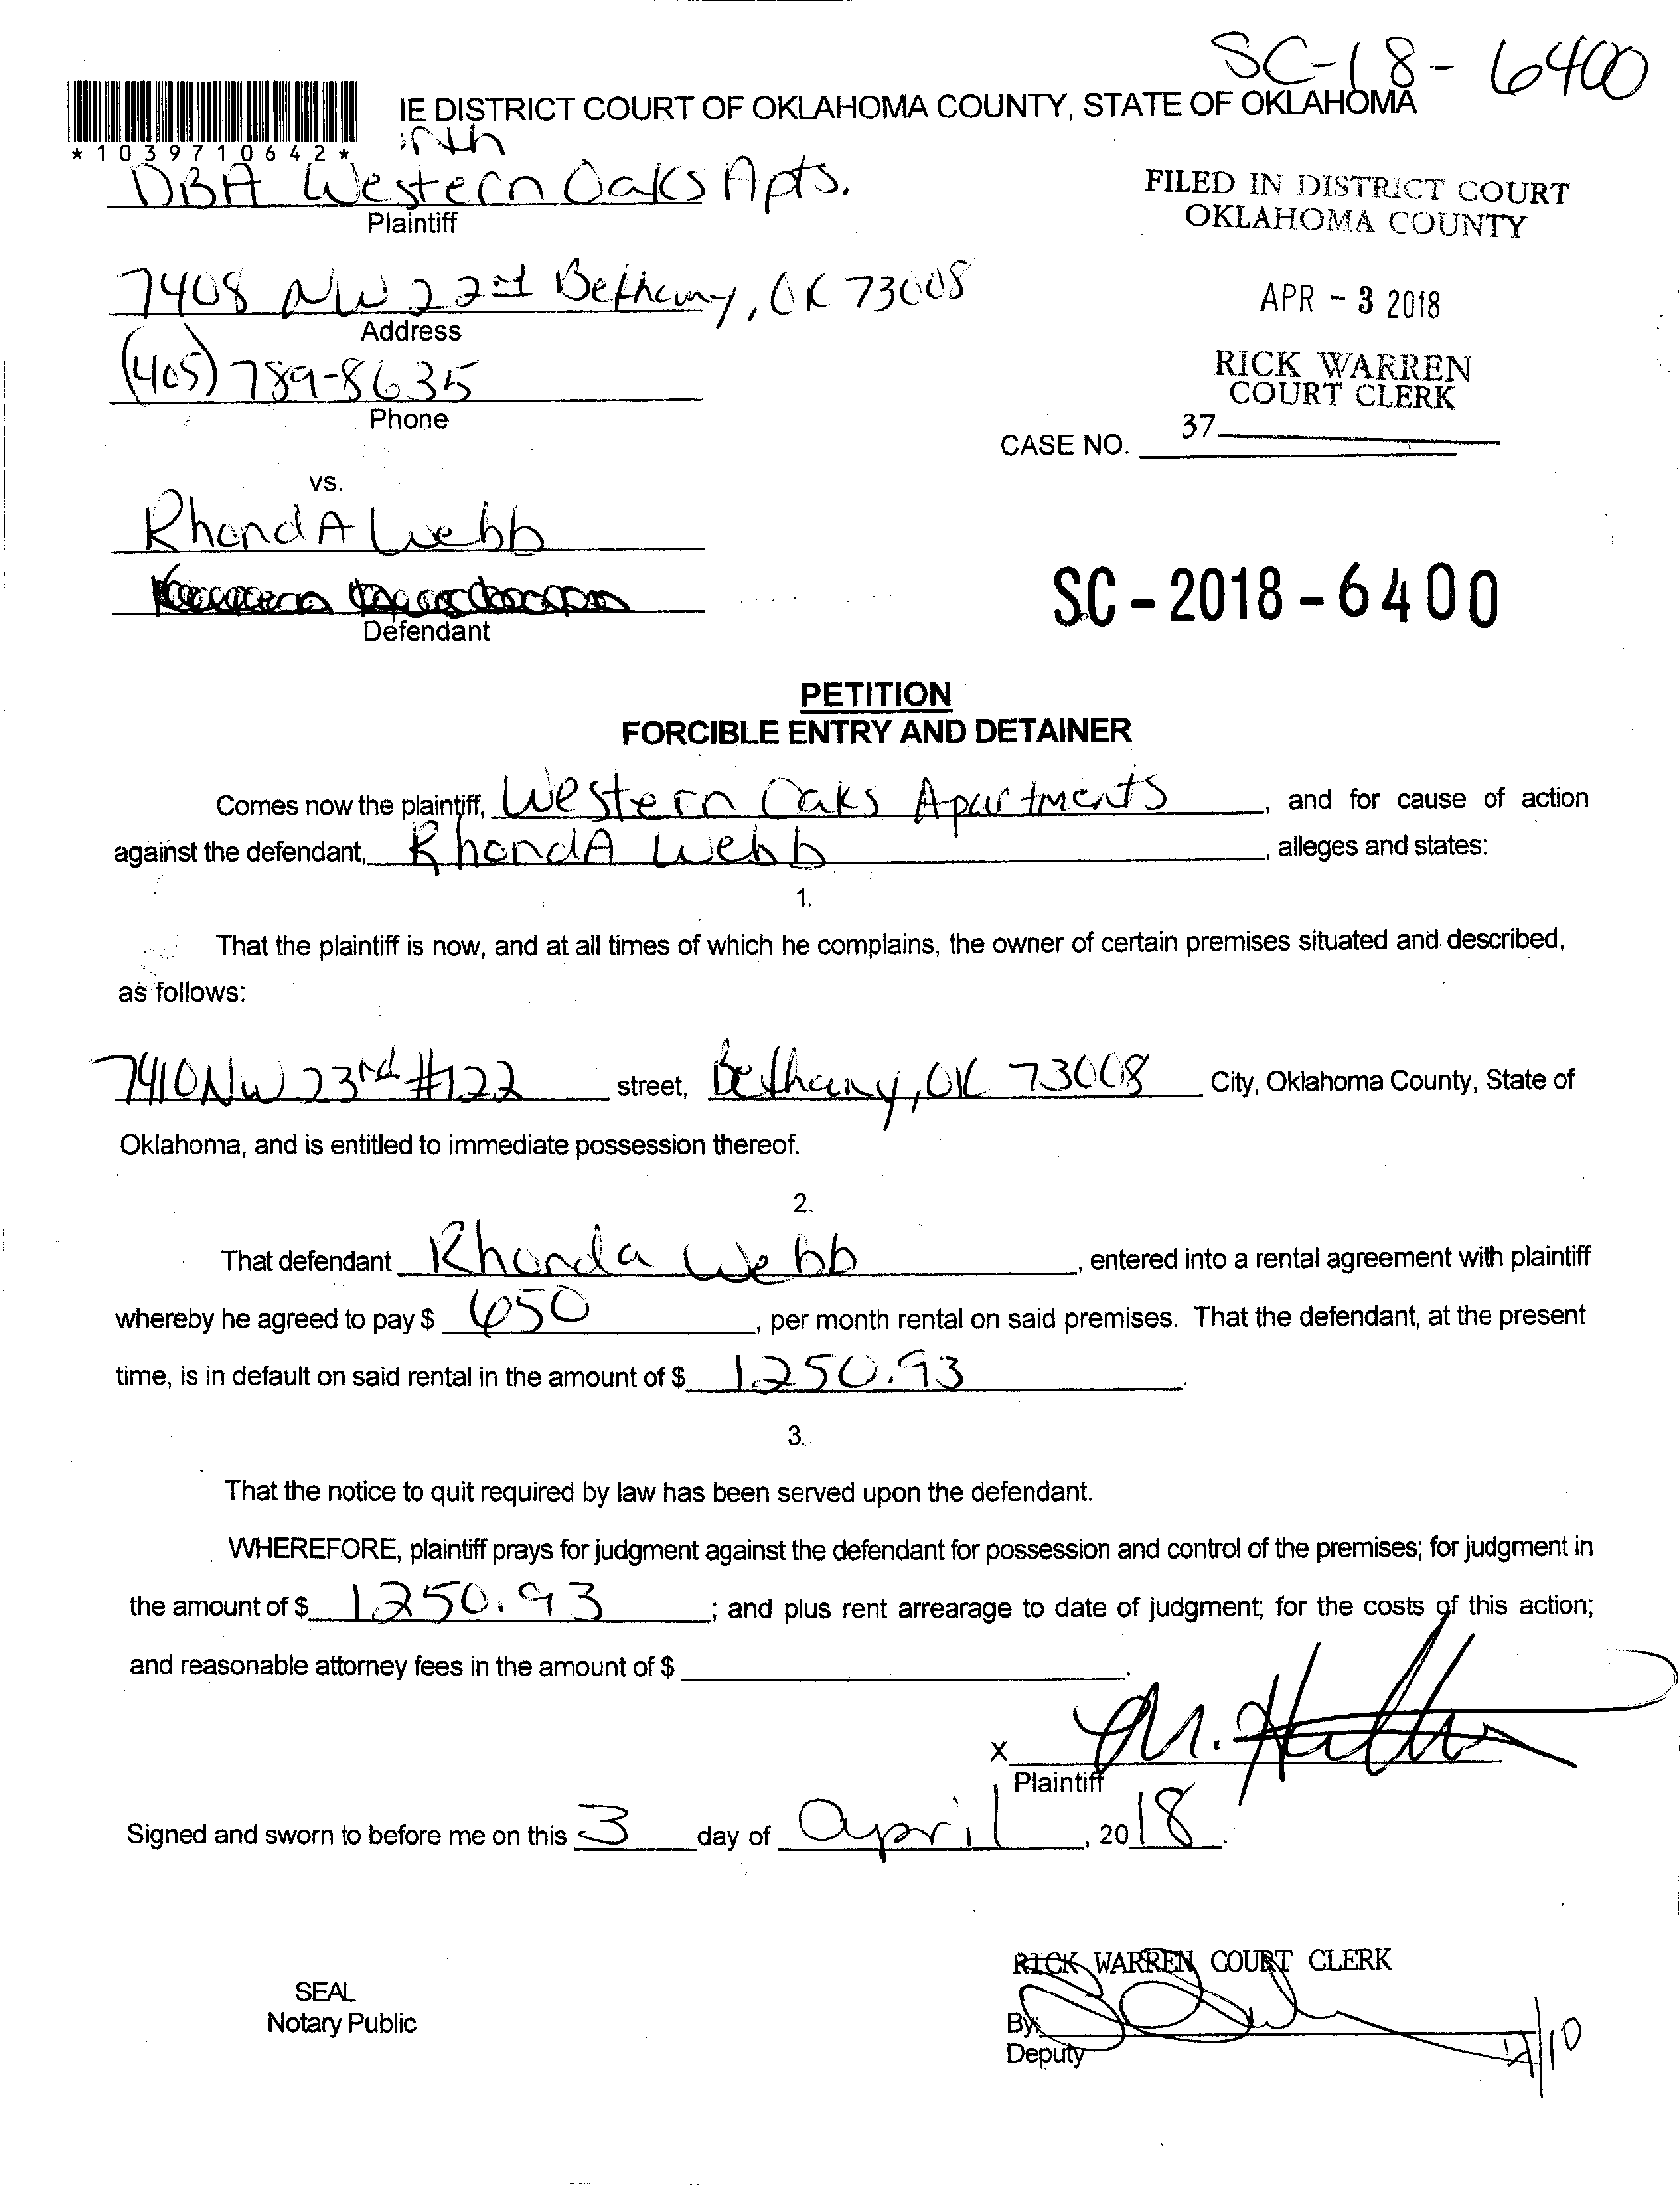 SC-18-6400
IE DISTRICT COURT OF OKLAHOMA COUNTY, STATE OF OKLAHOMA
*1039710642*
DBA Western Oaks Apts.
Plaintiff
FILED IN DISTRICT COURT
OKLAHOMA COUNTY
7408 NW 22nd Bethany, OK 73008
Address
APR - 3 2018
(405) 789-8635
Phone
RICK WARREN
COURT CLERK
37
CASE NO.
vs.
RhondA Webb
Defendant
SC-2018-6400
PETITION
FORCIBLE ENTRY AND DETAINER
Comes now the plaintiff, Western Oaks Apartments, and for cause of action
against the defendant, RhondA Webb, alleges and states:
1.
That the plaintiff is now, and at all times of which he complains, the owner of certain premises situated and described,
as follows:
7410 NW 23rd #122 street, Bethany, OK 73008 City, Oklahoma County, State of
Oklahoma, and is entitled to immediate possession thereof.
2.
That defendant Rhonda Webb, entered into a rental agreement with plaintiff
whereby he agreed to pay $ 650, per month rental on said premises. That the defendant, at the present
time, is in default on said rental in the amount of $ 1250.93.
3.
That the notice to quit required by law has been served upon the defendant.
WHEREFORE, plaintiff prays for judgment against the defendant for possession and control of the premises; for judgment in
the amount of $ 1250.93; and plus rent arrearage to date of judgment; for the costs of this action;
and reasonable attorney fees in the amount of $ .
X
Plaintiff
Signed and sworn to before me on this 3 day of April, 2018.
RICK WARREN COURT CLERK
SEAL
Notary Public
By:
Deputy